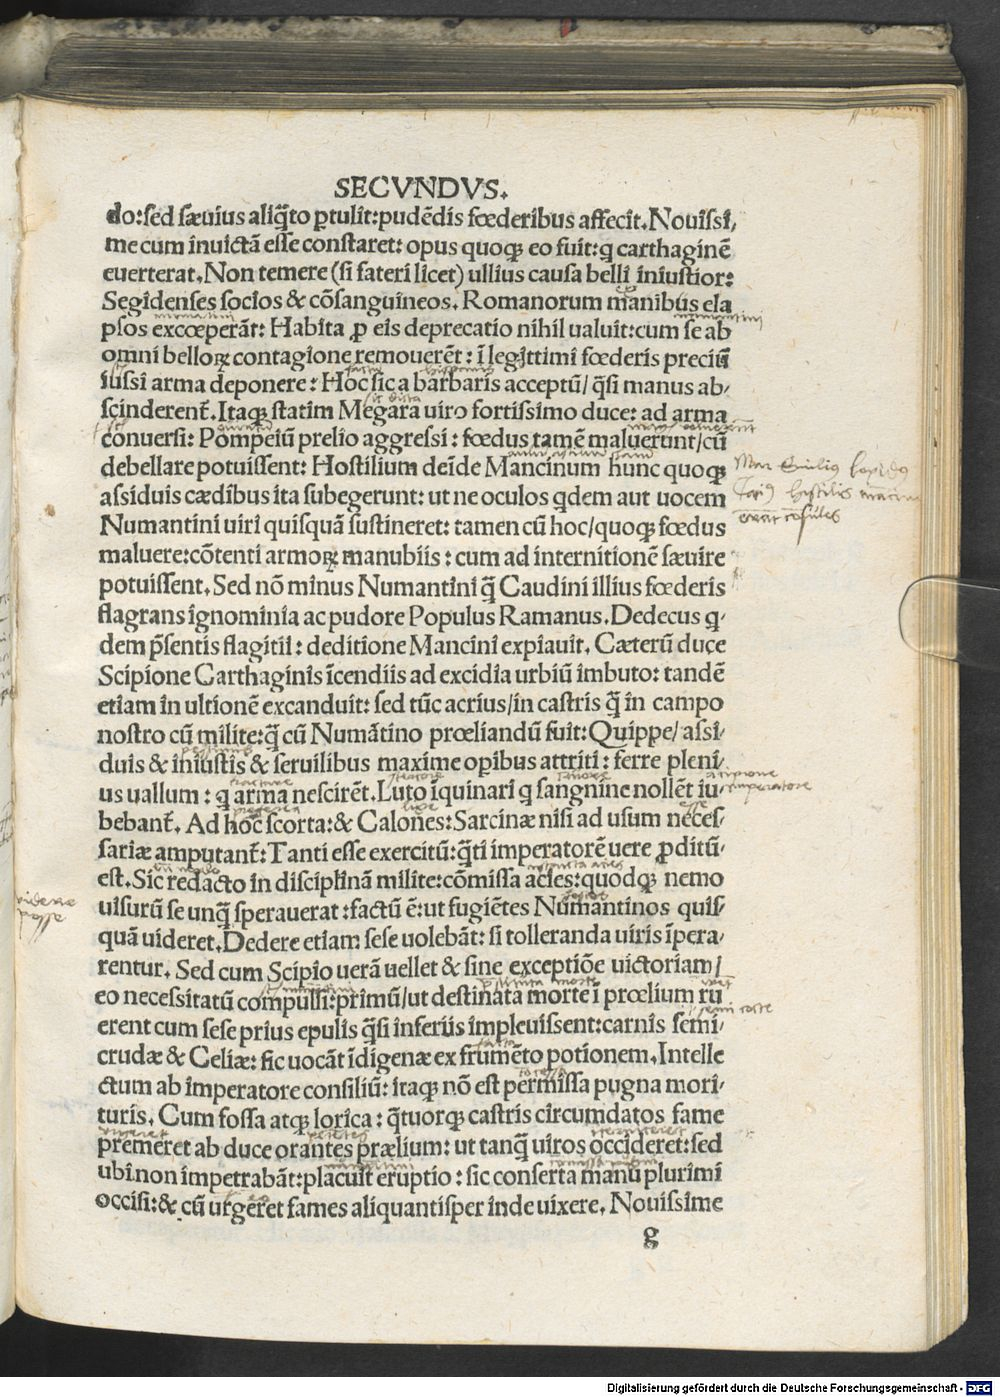 SECVNDVS.
do:sed sæuius aliq̃to ꝑtulit:pudẽdis fœderibus affecit.Nouissi,
me cum inuictã esse constaret: opus quoqꝫ eo fuit:q carthaginẽ
euerterat.Non temere (si fateri licet) ullius causa belli iniustior:
Segidenses socios & cõsanguineos. Romanorum manibus ela
psos excœperãt: Habita ꝓ eis deprecatio nihil ualuit:cum se ab
omni belloꝝ contagione remouerẽt: ĩ legittimi fœderis preciũ
iussi arma deponere: Hoc sic a barbaris acceptũ/ q̃si manus ab,
scinderent̃. Itaqꝫ statim Megara uiro fortissimo duce: ad arma
conuersi: Pompeiũ prelio aggressi: fœdus tamẽ maluerunt/cũ
debellare potuissent: Hostilium deĩde Mancinum hunc quoqꝫ
assiduis cædibus ita subegerunt: ut ne oculos qdem aut uocem
Numantini uiri quisquã sustineret: tamen cũ hoc/quoqꝫ fœdus
maluere:cõtenti armoꝝ manubiis: cum ad internitionẽ sæuire
potuissent. Sed nõ minus Numantini q̃ Caudini illius fœderis
flagrans ignominia ac pudore Populus Ramanus. Dedecus q,
dem p̃sentis flagitii: deditione Mancini expiauit. Cæterũ duce
Scipione Carthaginis ĩcendiis ad excidia urbiũ imbuto: tandẽ
etiam in ultionẽ excanduit: sed tũc acrius/in castris q̃ in campo
nostro cũ milite:q̃ cũ Numãtino prœliandũ fuit: Quippe/assi,
duis & iniustis & seruilibus maxime oꝑibus attriti: ferre pleni,
us uallum: q arma nescirẽt.Luto ĩquinari q sangnine nollẽt iu,
bebant̃. Ad hoc scorta:& Calones: Sarcinæ nisi ad usum neces,
sariæ amputant̃: Tanti esse exercitũ:q̃ti imperatorẽ uere ꝓditũ,
est. Sic redacto in disciplinã milite:cõmissa acies:quodqꝫ nemo
uisurũ se unq̃ sperauerat:factũ ẽ:ut fugiẽtes Numantinos quis,
quã uideret.Dedere etiam sese uolebãt: si tolleranda uiris ĩpera,
rentur. Sed cum Scipio uerã uellet & sine exceptiõe uictoriam/
eo necessitatũ compulsi:primũ/ut destinata morte ĩ prœlium ru
erent cum sese prius epulis q̃si inferiis impleuissent:carnis semi,
crudæ & Celiæ: sic uocãt ĩdigenæ ex frumẽto potionem. Intelle
ctum ab imperatore consiliũ: itaqꝫ nõ est permissa pugna mori,
turis. Cum fossa atqꝫ lorica: q̃tuorqꝫ castris circumdatos fame
premeret ab duce orantes prælium: ut tanq̃ uiros occideret:sed
ubi non impetrabãt:placuit eruptio: sic conserta manu plurimi
occisi:& cũ urgeret fames aliquantisper inde uixere. Nouissime
g
uidere
posse
Digitalisierung gefördert durch die Deutsche Forschungsgemeinschaft - DFG